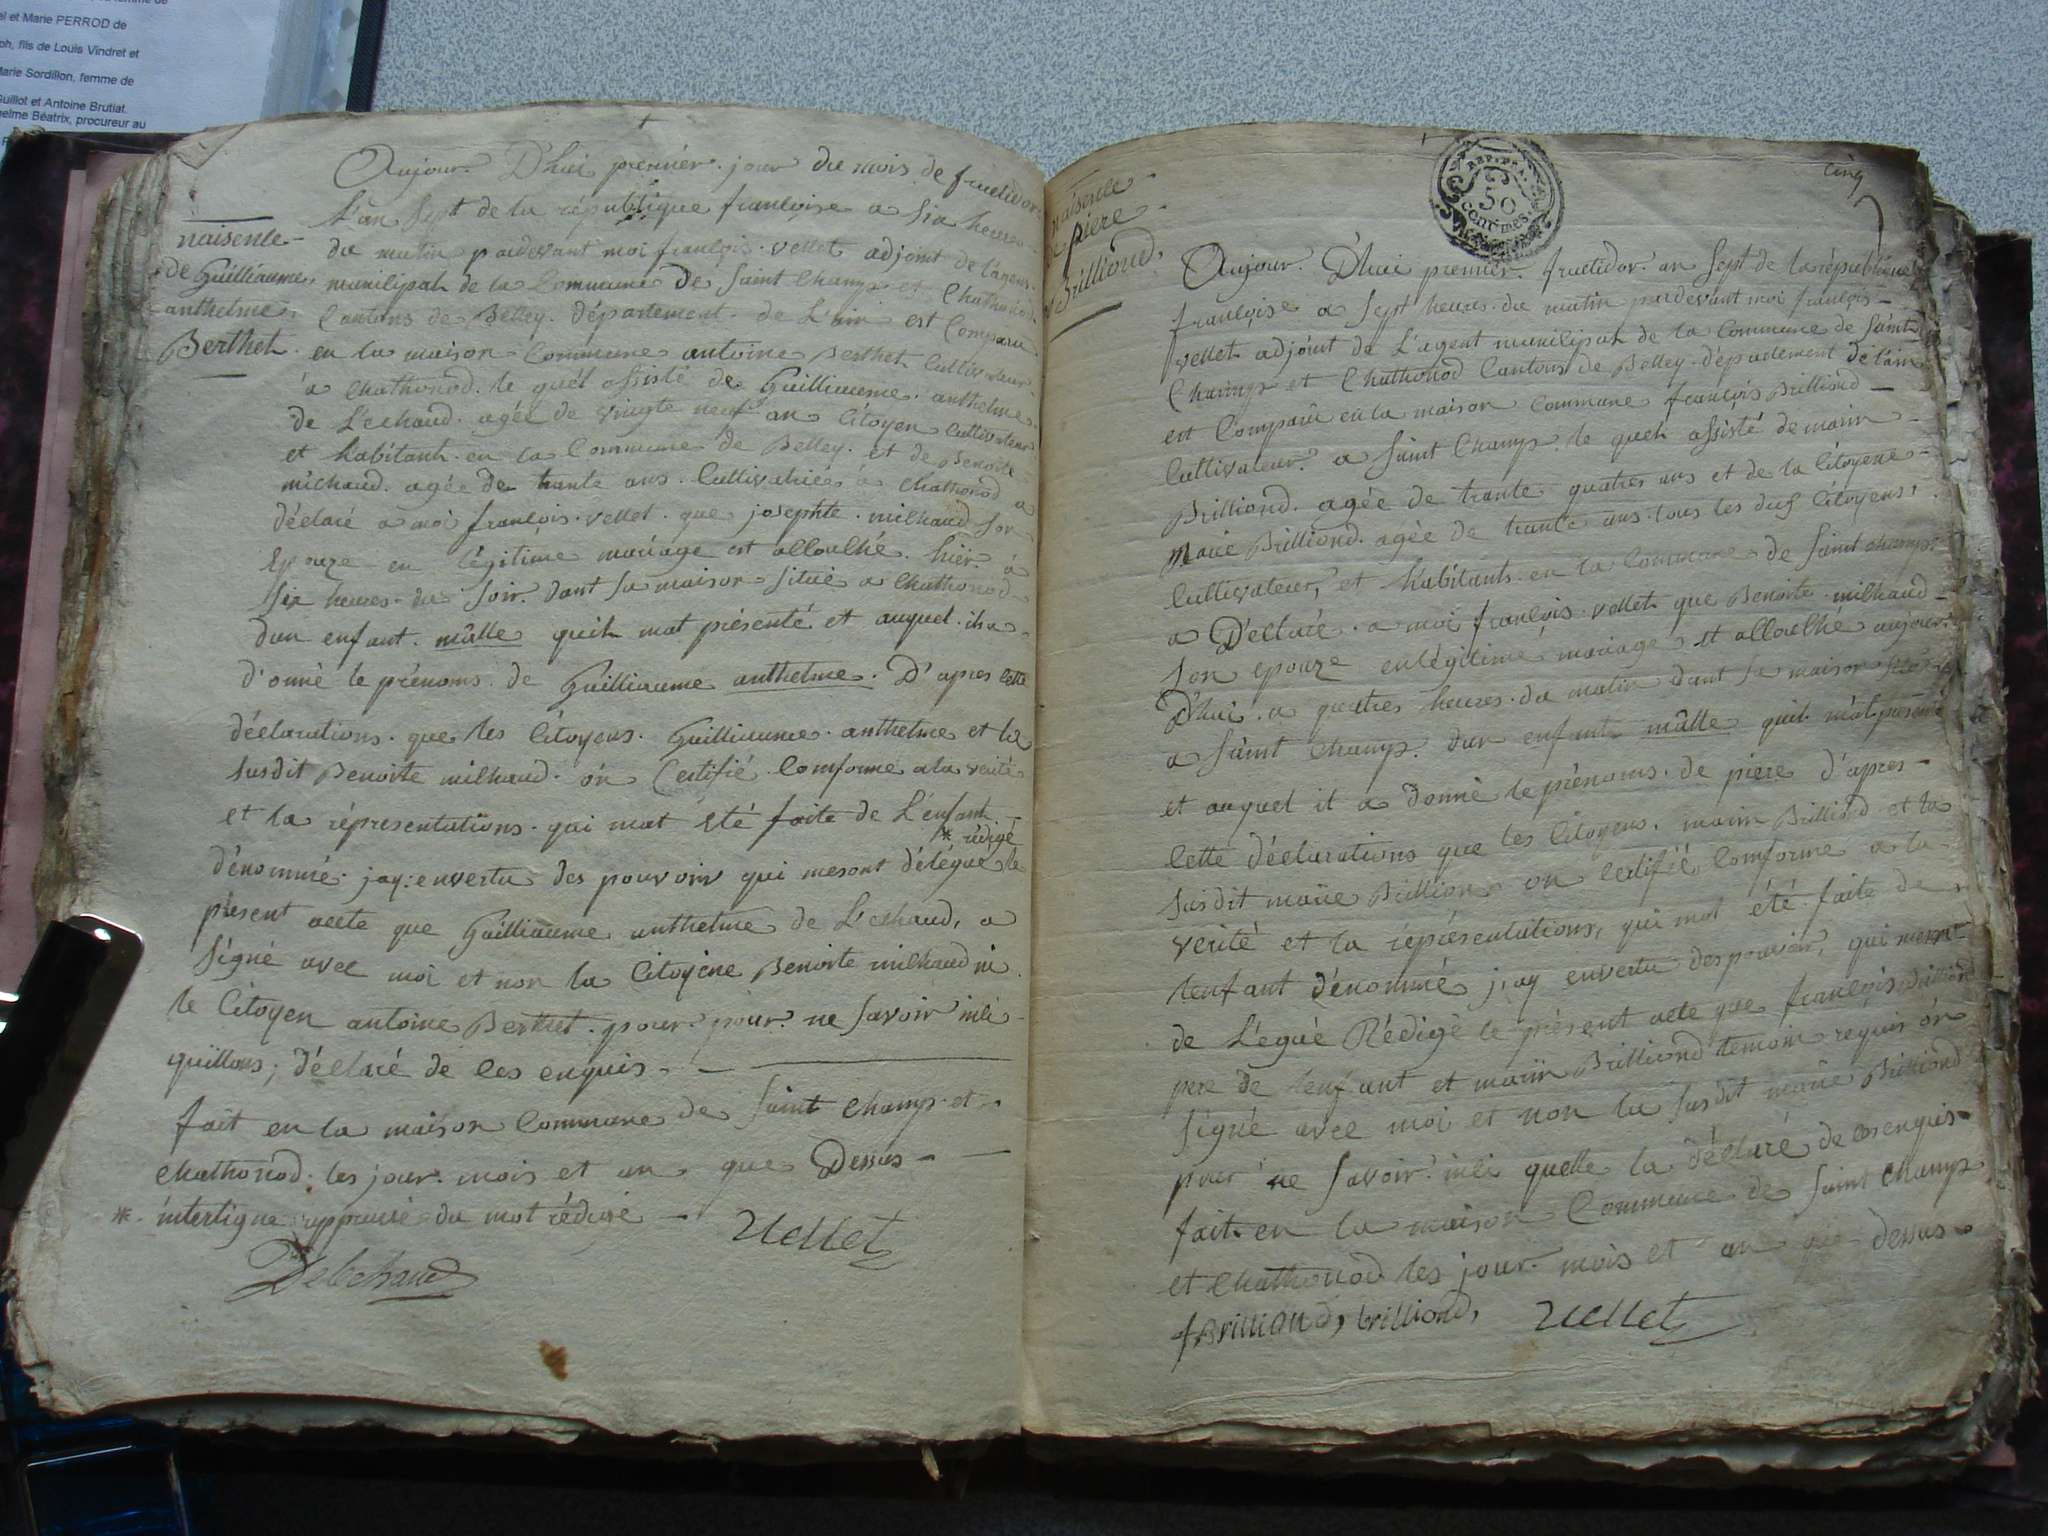 el et Marie PERROD de
ph, fils de Louis Vindret et
Marie Sordillon, femme de
Guillot et Antoine Brutiat.
elme Béatrix, procureur au
naisence
de Guilliaume
anthelme
Berthet
Aujour D'hui premier jour du mois de fructidor
L'an sept de la république francoise a six heures
du matin pardevant moi françois vellet adjoint de l'agent
municipah de la Commune De Saint Champ et Chathonod
Cantons de Belley département de L'ain est Comparu
en la maison Commune antoine Berthet Cultivateur
a Chathonod le quel assisté de Guilliaume anthelme
De Lechaud agée de vingte neuf an Citoyen Cultivateur
et habitant en la Commune de Belley et de Benoite
michaud agée De trante ans Cultivatrices a Chathonod a
déclaré a moi françois vellet que josephte milhaud son
Epouze en légitime mariage est allouché hier a
six heures du soir dant sa maison situé a Chathonod
dun enfant mâlle quih mat présenté et auquel il a
d'onné le prénoms de Guilliaume anthelme D'apres cette
déclarations que les Citoyens Guilliaume anthelme et la
susdit Benoite milhaud on Certifié Comforme a la verité
et la réprésentations qui mat été faite de L'enfant
* rédigé
dénommé jay envertu des pouvoir qui mesont délégue le
présent acte que Guilliaume anthelme de Lechaud, a
signé avec moi et non la Citoyene Benoite milhaud ni
le Citoyen antoine Berthet pour pour ne savoir inli
quillons; déclaré de ces enquis
fait en la maison Commune de Saint Champ et
Chathonod les jour mois et an que Dessus
* interligne approuvé du mot rédigé
Delechaud
vellet
naisence
de piere
Brilliond
REP. FRA.
50
centimes
cinq
Aujour D'hui premier fructidor an sept de la république
françoise a sept heures du matin pardevant moi françois
vellet adjoint de L'agent municipah de la Commune de Saint
Champ et Chathonod Cantons de Belley département de l'ain
est Comparu en la maison Commune françois Brilliond
Cultivateur a Saint Champ le queh assisté de marin
Brilliond agée de trante quatres ans et de la Citoyene
Marie Brilliond agée de trante ans tous les deuf Citoyens
Cultivateur, et habitants en la Commune de Saint Champ
a Déclaré a moi françois vellet que Benoite milhaud
son epouze enlégitime mariage est allouché aujour
D'hui a quatres heures du matin dant sa maison
a Saint Champ dun enfant mâlle quih mat présenté
et auquel il a donné le prénoms de piere d'apres
Cette déclarations que les Citoyens marin Brilliond et la
susdit marie Brillion on Certifié Comforme a la
verité et la réprésentations, qui mat été faite de
lenfant dénommé jay envertu des pouvoir, qui mesont
de Légué Rédigé le présent acte que françois Brilliond
pere de lenfant et marin Brilliond temoin requis on
signé avec moi et non la susdit marie Brilliond
pour ne savoir inli quelle la déclaré de ces enquis
fait en la maison Commune de Saint Champ
et Chathonod les jour mois et an que dessus
fBrilliond, brilliond, vellet